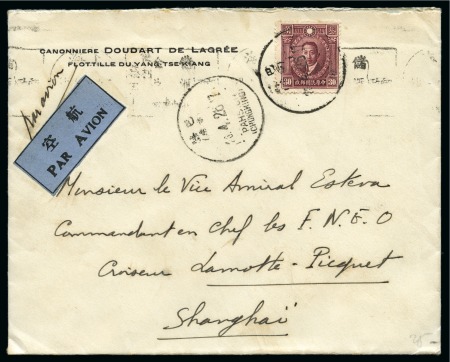 CANONNIERE DOUDART DE LAGRÉE
FLOTTILLE DU YANG-TSE-KIANG
Par avion
空 航
PAR AVION
巴
PAHSIEN
(CHUNGKING)
30 30
Monsieur le Vice Amiral Esteva
Commandant en Chef les F.N.E.O
Croiseur Lamotte-Picquet
Shanghaï